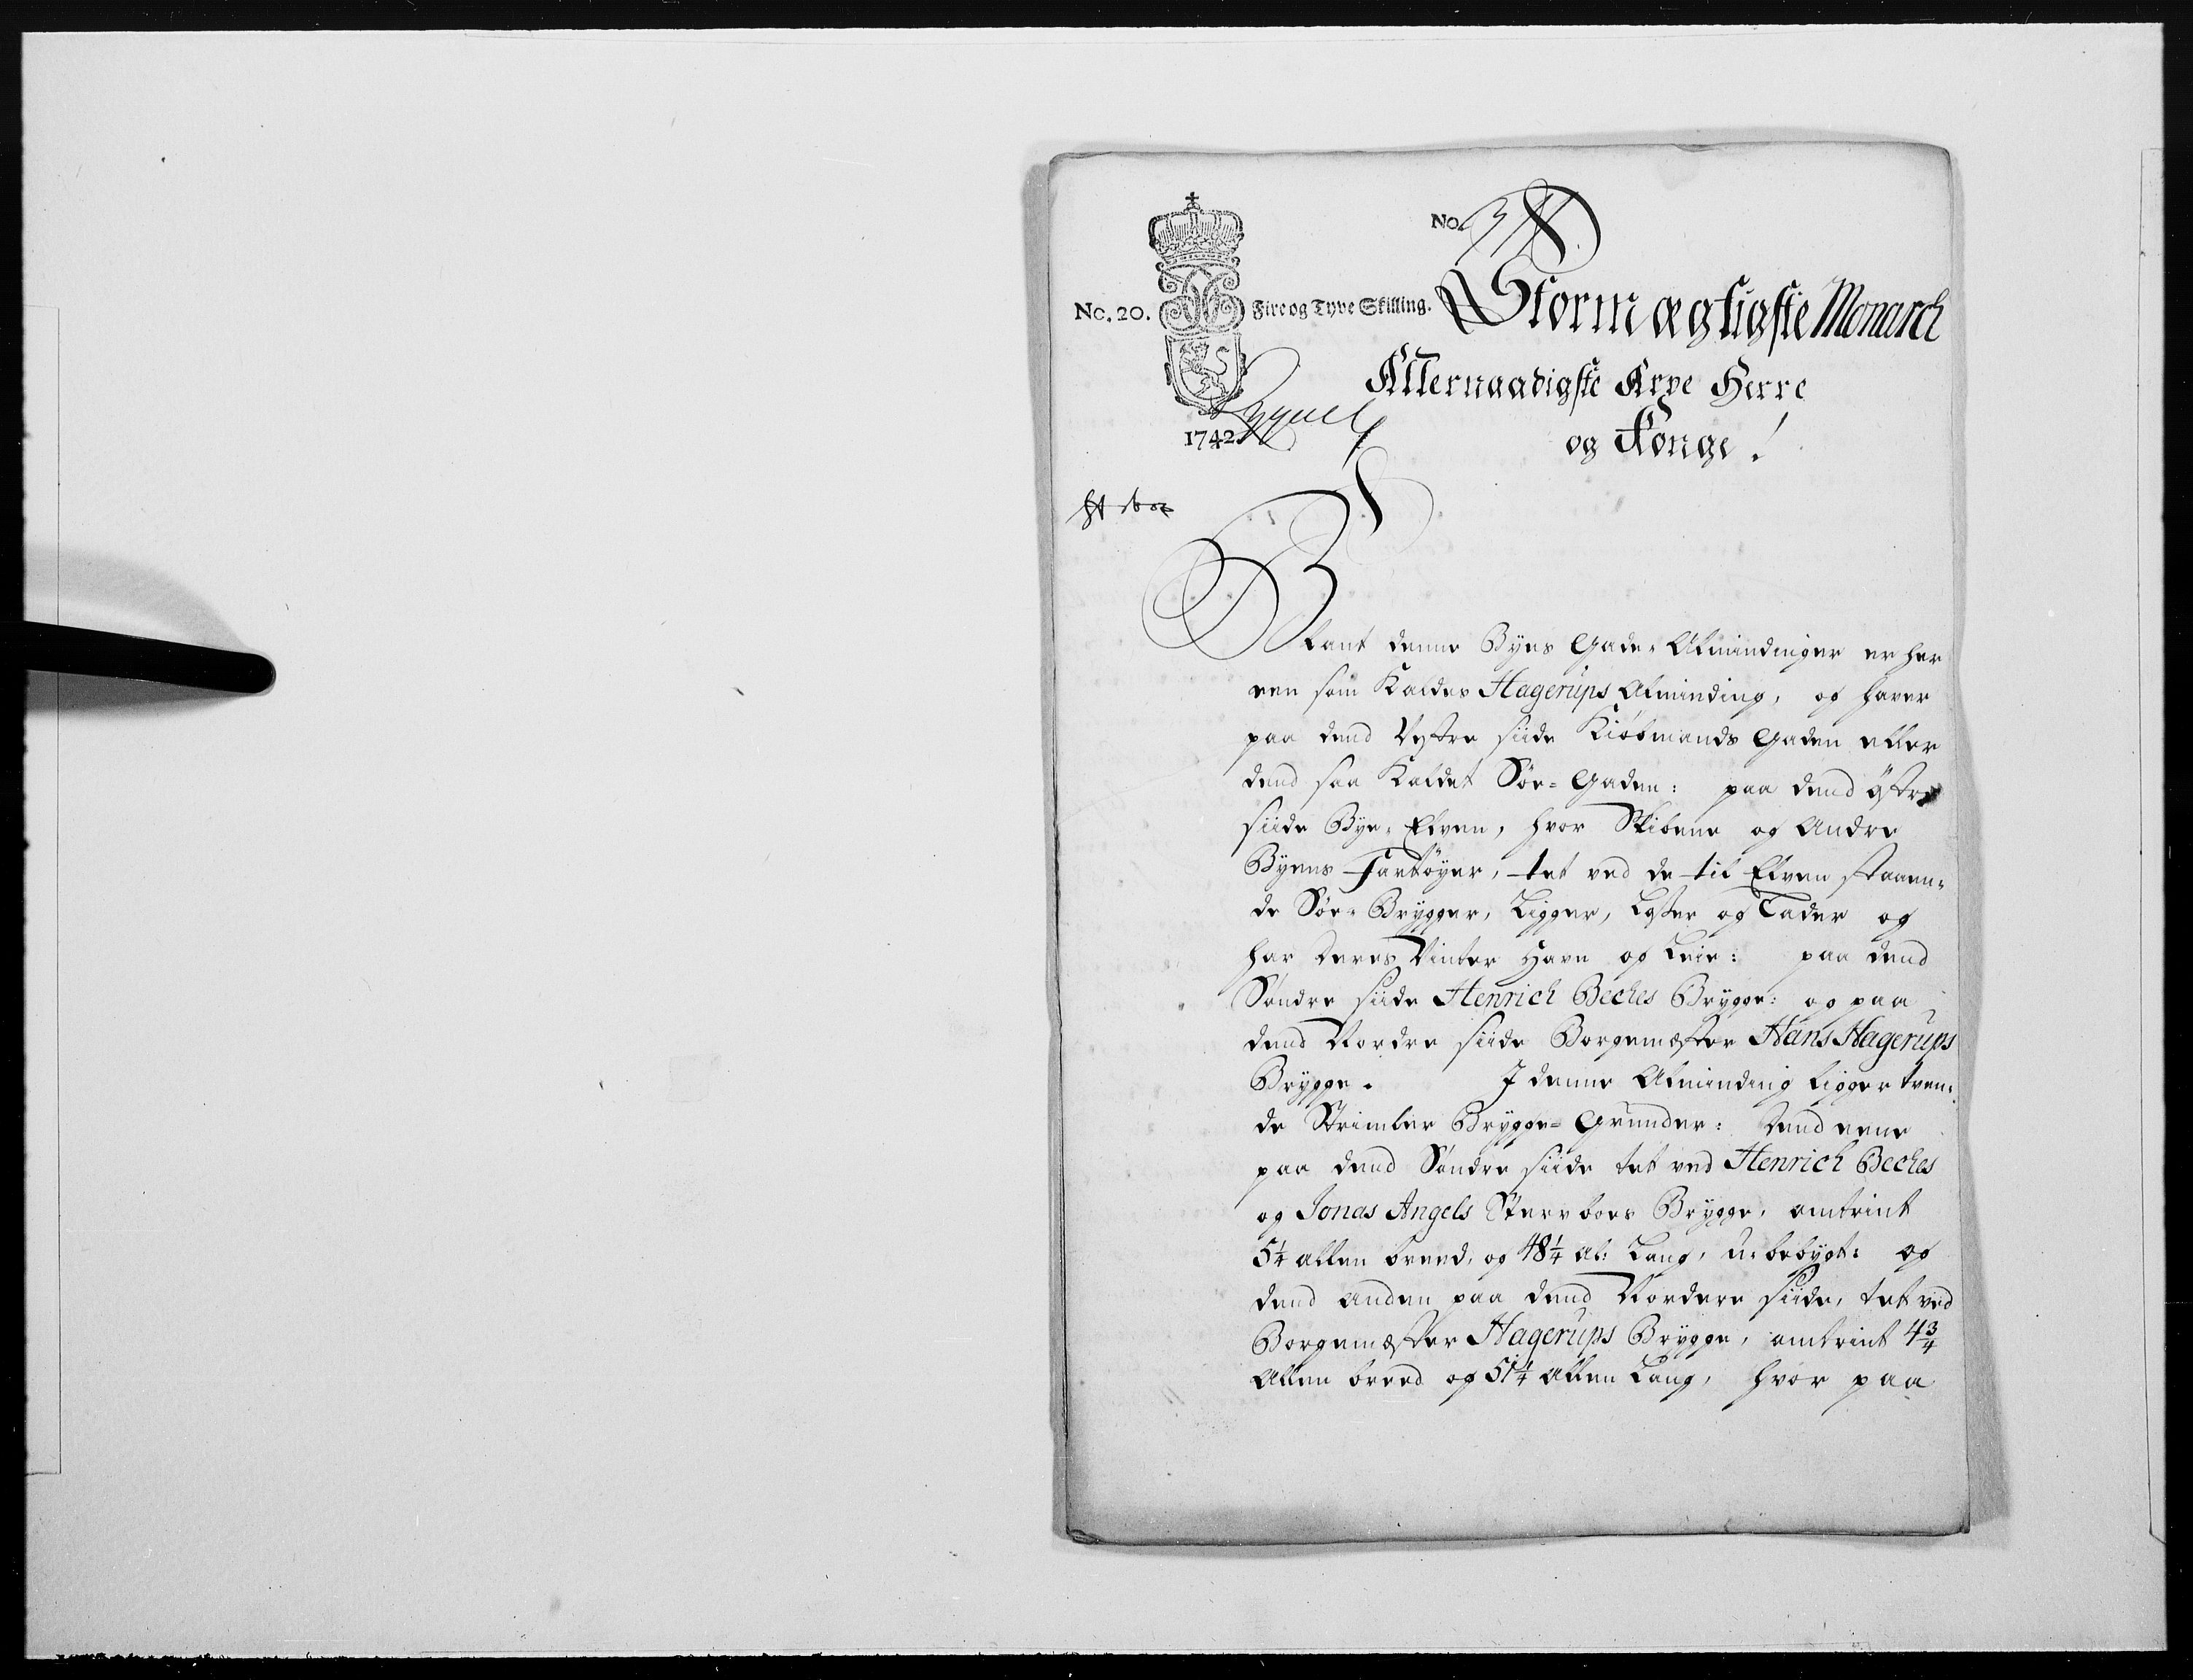 No.
No. 20. Fire og Tyve Skilling.
Stormægtigste Monarch
Allernaadigste Arve Herre
og Konge!
1742.
Blant denne Byes Gade-Almindinger er her
een som Kaldes Hagerups Alminding, og haver
paa dend Vestre siide Kiöbmands Gaden eller
dend saa Kaldet Söe-Gaden: paa dend östre
siide Bye-Elven, hvor Skibene og Andre
Byens Fartöyer, tet ved de til Elven staaen-
de Söe-Brygger, Ligger, Loster og Lader og
har deres Vinter Havn og Leie: paa dend
Söndre siide Henrich Beches Brygge: og paa
dend Nordre siide Borgemæster Hans Hagerups
Brygge. I denne Alminding ligger tven-
de Strimler Brygge-Grunder: dend eene
paa dend Söndre siide tet ved Henrich Beches
og Jonas Angels Sterv boes Brygge, omtrint
5¼ allen breed, og 48¼ al: Lang, u-bebygt: og
dend anden paa dend Nordere siide, tet ved
Borgemæster Hagerups Brygge, omtrint 4¾
Allen breed og 51¼ allen Lang, hvor paa